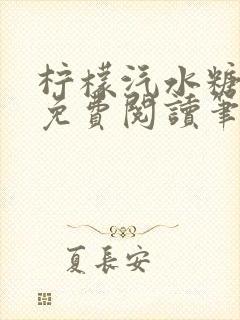 柠檬汽水糖
免費閱讀筆
夏長安